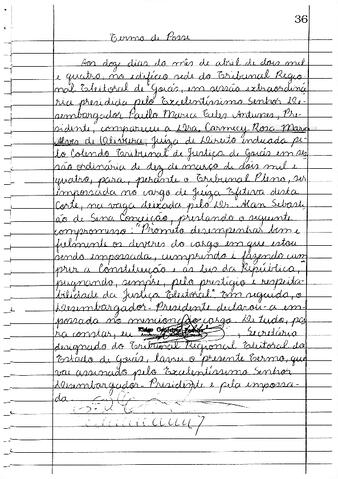 36
Termo de Posse
Aos doze dias do mês de abril de dois mil
e quatro, no edifício sede do Tribunal Regio
nal Eleitoral de Goiás, em sessão extraordiná
ria presidida pelo Excelentíssimo Senhor De
sembargador Paulo Maria Teles Antunes, Pre-
sidente, compareceu a Dra. Carmecy Rosa Maria
Alves de Oliveira, Juíza de Direito indicada pe
lo Colendo Tribunal de Justiça de Goiás em ses
são ordinária de dez de março de dois mil e
quatro, para, perante o Tribunal Pleno, ser
empossada no cargo de Juíza Efetiva desta
Corte, na vaga deixada pelo Dr. Alan Sebasti
ão de Sena Conceição, prestando o seguinte
compromisso: "Prometo desempenhar bem e
fielmente os deveres do cargo em que estou
sendo empossada, cumprindo e fazendo cum
prir a Constituição e as Leis da República,
pugnando, sempre, pelo prestígio e respeita-
bilidade da Justiça Eleitoral". Em seguida, o
Desembargador-Presidente declarou-a em
possada no mencionado cargo. De tudo, pa
ra constar, eu , Secretário
designado do Tribunal Regional Eleitoral do
Estado de Goiás, lavrei o presente Termo, que
vai assinado pelo Excelentíssimo Senhor
Desembargador-Presidente e pela empossa-
da